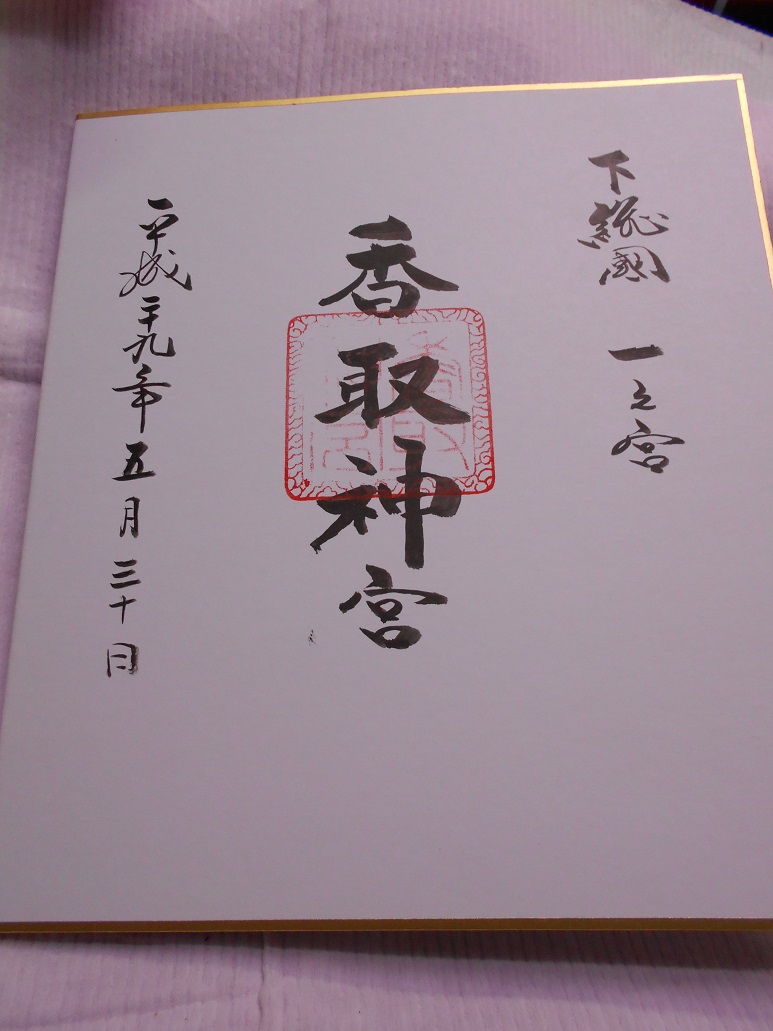 下総國 一之宮
香取神宮
平成二十九年五月三十日